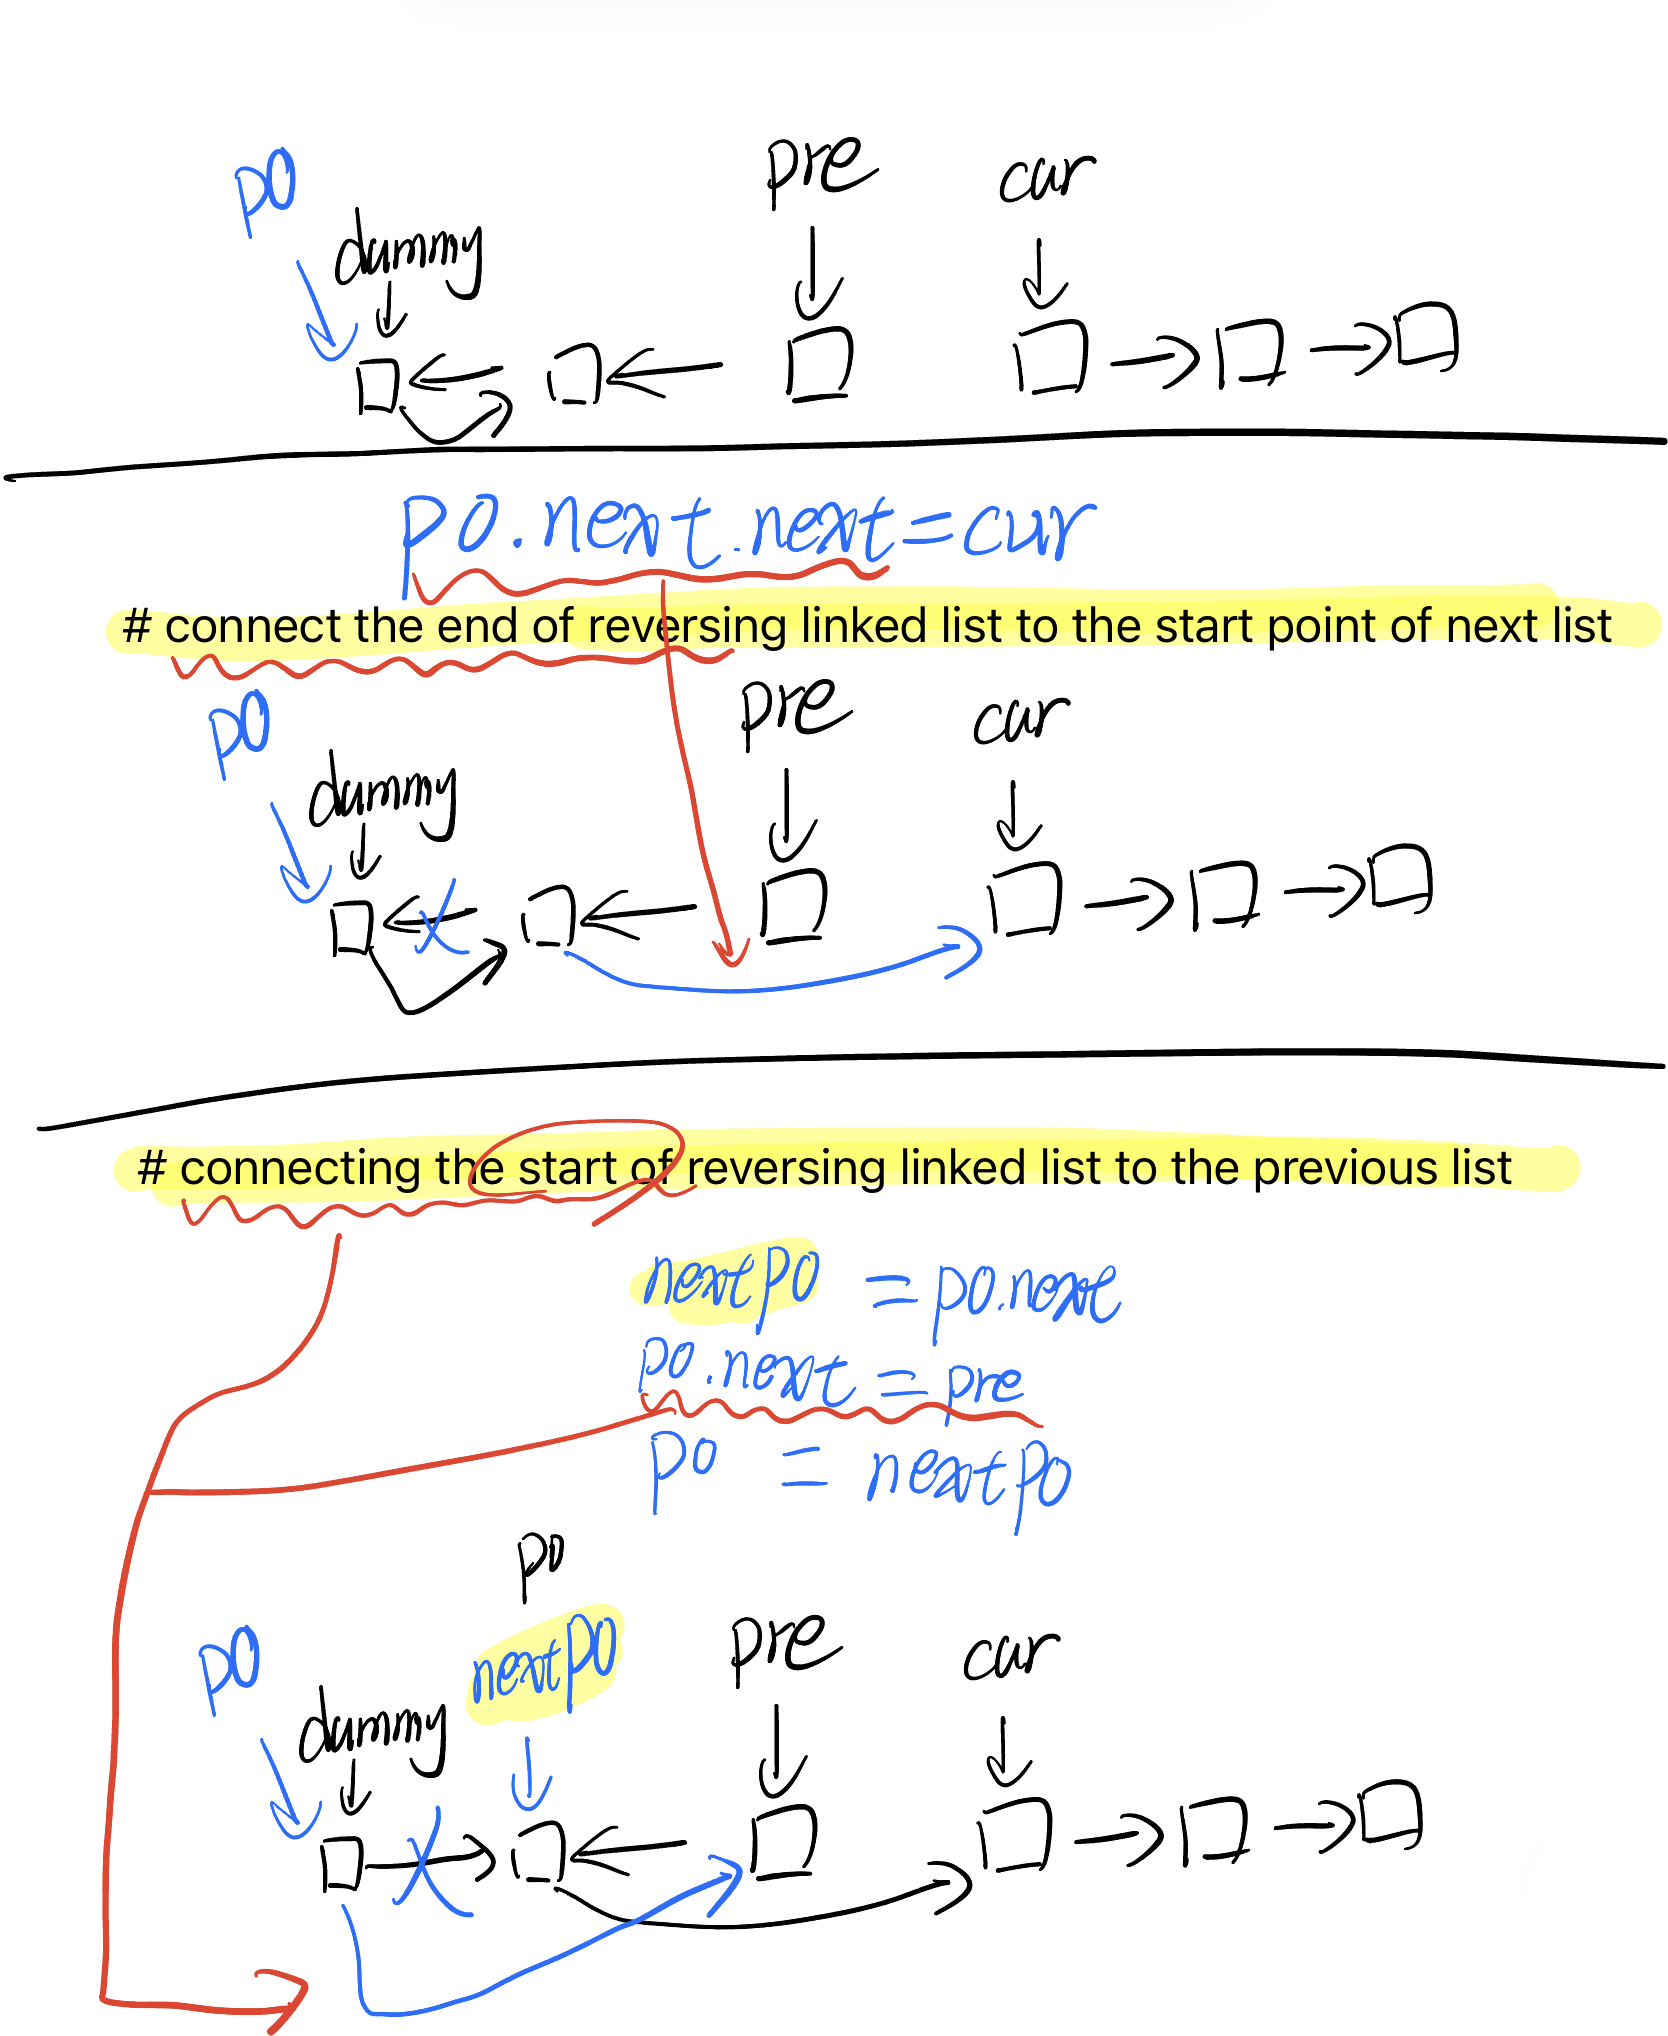 p0
pre
cur
dummy
p0.next.next=cur
# connect the end of reversing linked list to the start point of next list
p0
pre
cur
dummy
# connecting the start of reversing linked list to the previous list
nextp0 = p0.next
p0.next = pre
p0 = nextp0
p0
p0
nextp0
pre
cur
dummy